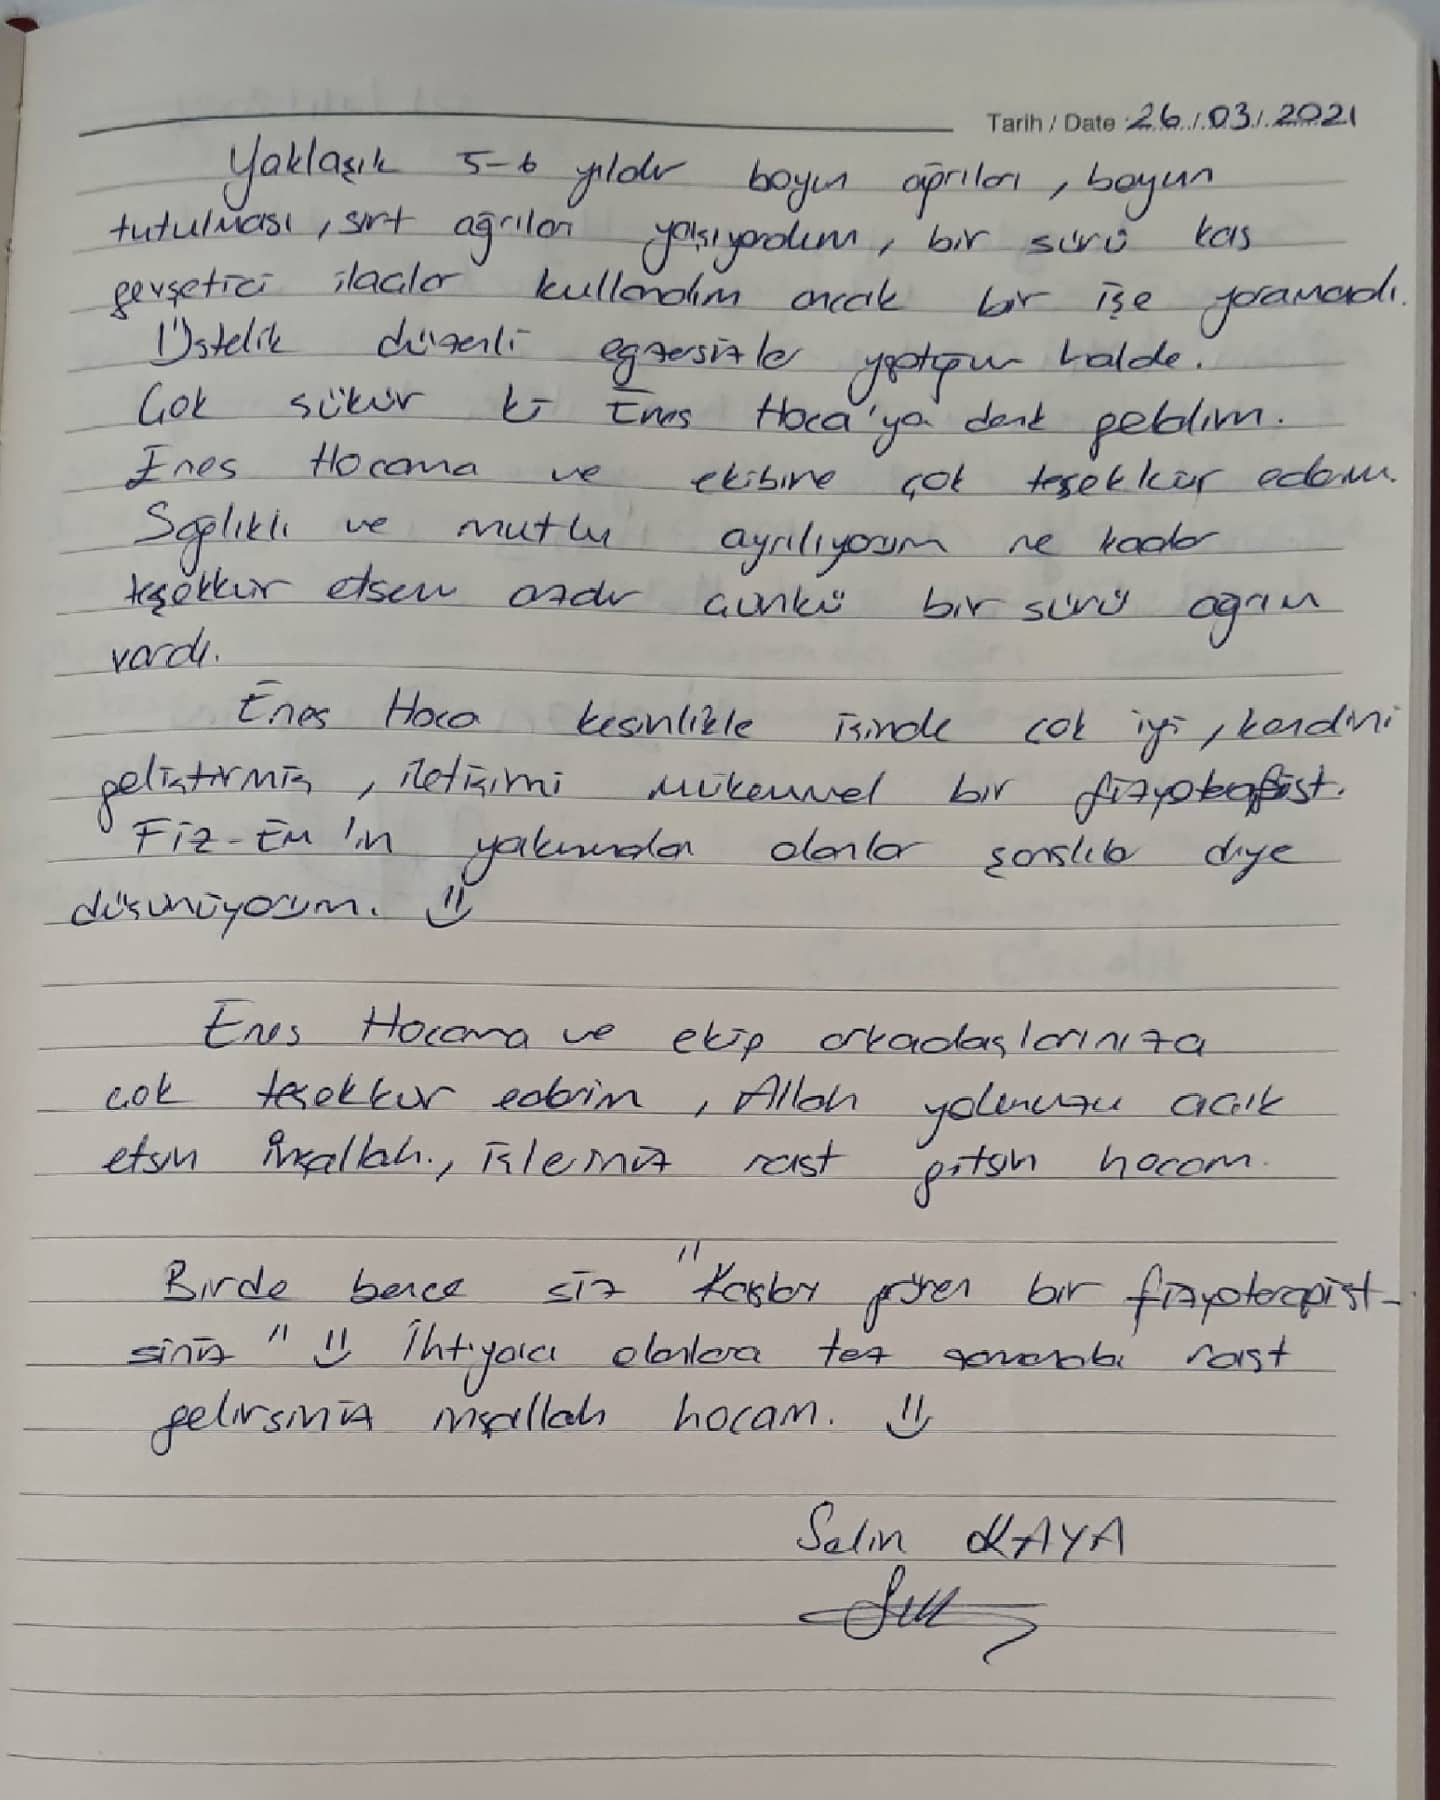 Tarih / Date 26/03/2021
Yaklaşık 5-6 yıldır boyun ağrıları, boyun
tutulması, sırt ağrıları yaşıyordum, bir sürü kas
gevşetici ilaçlar kullandım ancak bir işe yaramadı.
Üstelik düzenli egzersizler yaptığım halde.
Çok şükür ki Enes Hoca'ya denk geldim.
Enes Hocama ve ekibine çok teşekkür ederim.
Sağlıklı ve mutlu ayrılıyorum ne kadar
teşekkür etsem azdır çünkü bir sürü ağrım
vardı.
Enes Hoca kesinlikle işinde çok iyi, kendini
geliştirmiş, iletişimi mükemmel bir fizyoterapist.
Fiz-Em'in yakınında olanlar şanslılar diye
düşünüyorum. :)
Enes Hocama ve ekip arkadaşlarınıza
çok teşekkür ederim, Allah yolunuzu açık
etsin İnşallah., işleriniz rast gitsin hocam.
Birde bence siz "Kalple gören bir fizyoterapist-
siniz" :) İhtiyacı olanlara tez zamanda rast
gelirsiniz inşallah hocam. :)
Selin KAYA